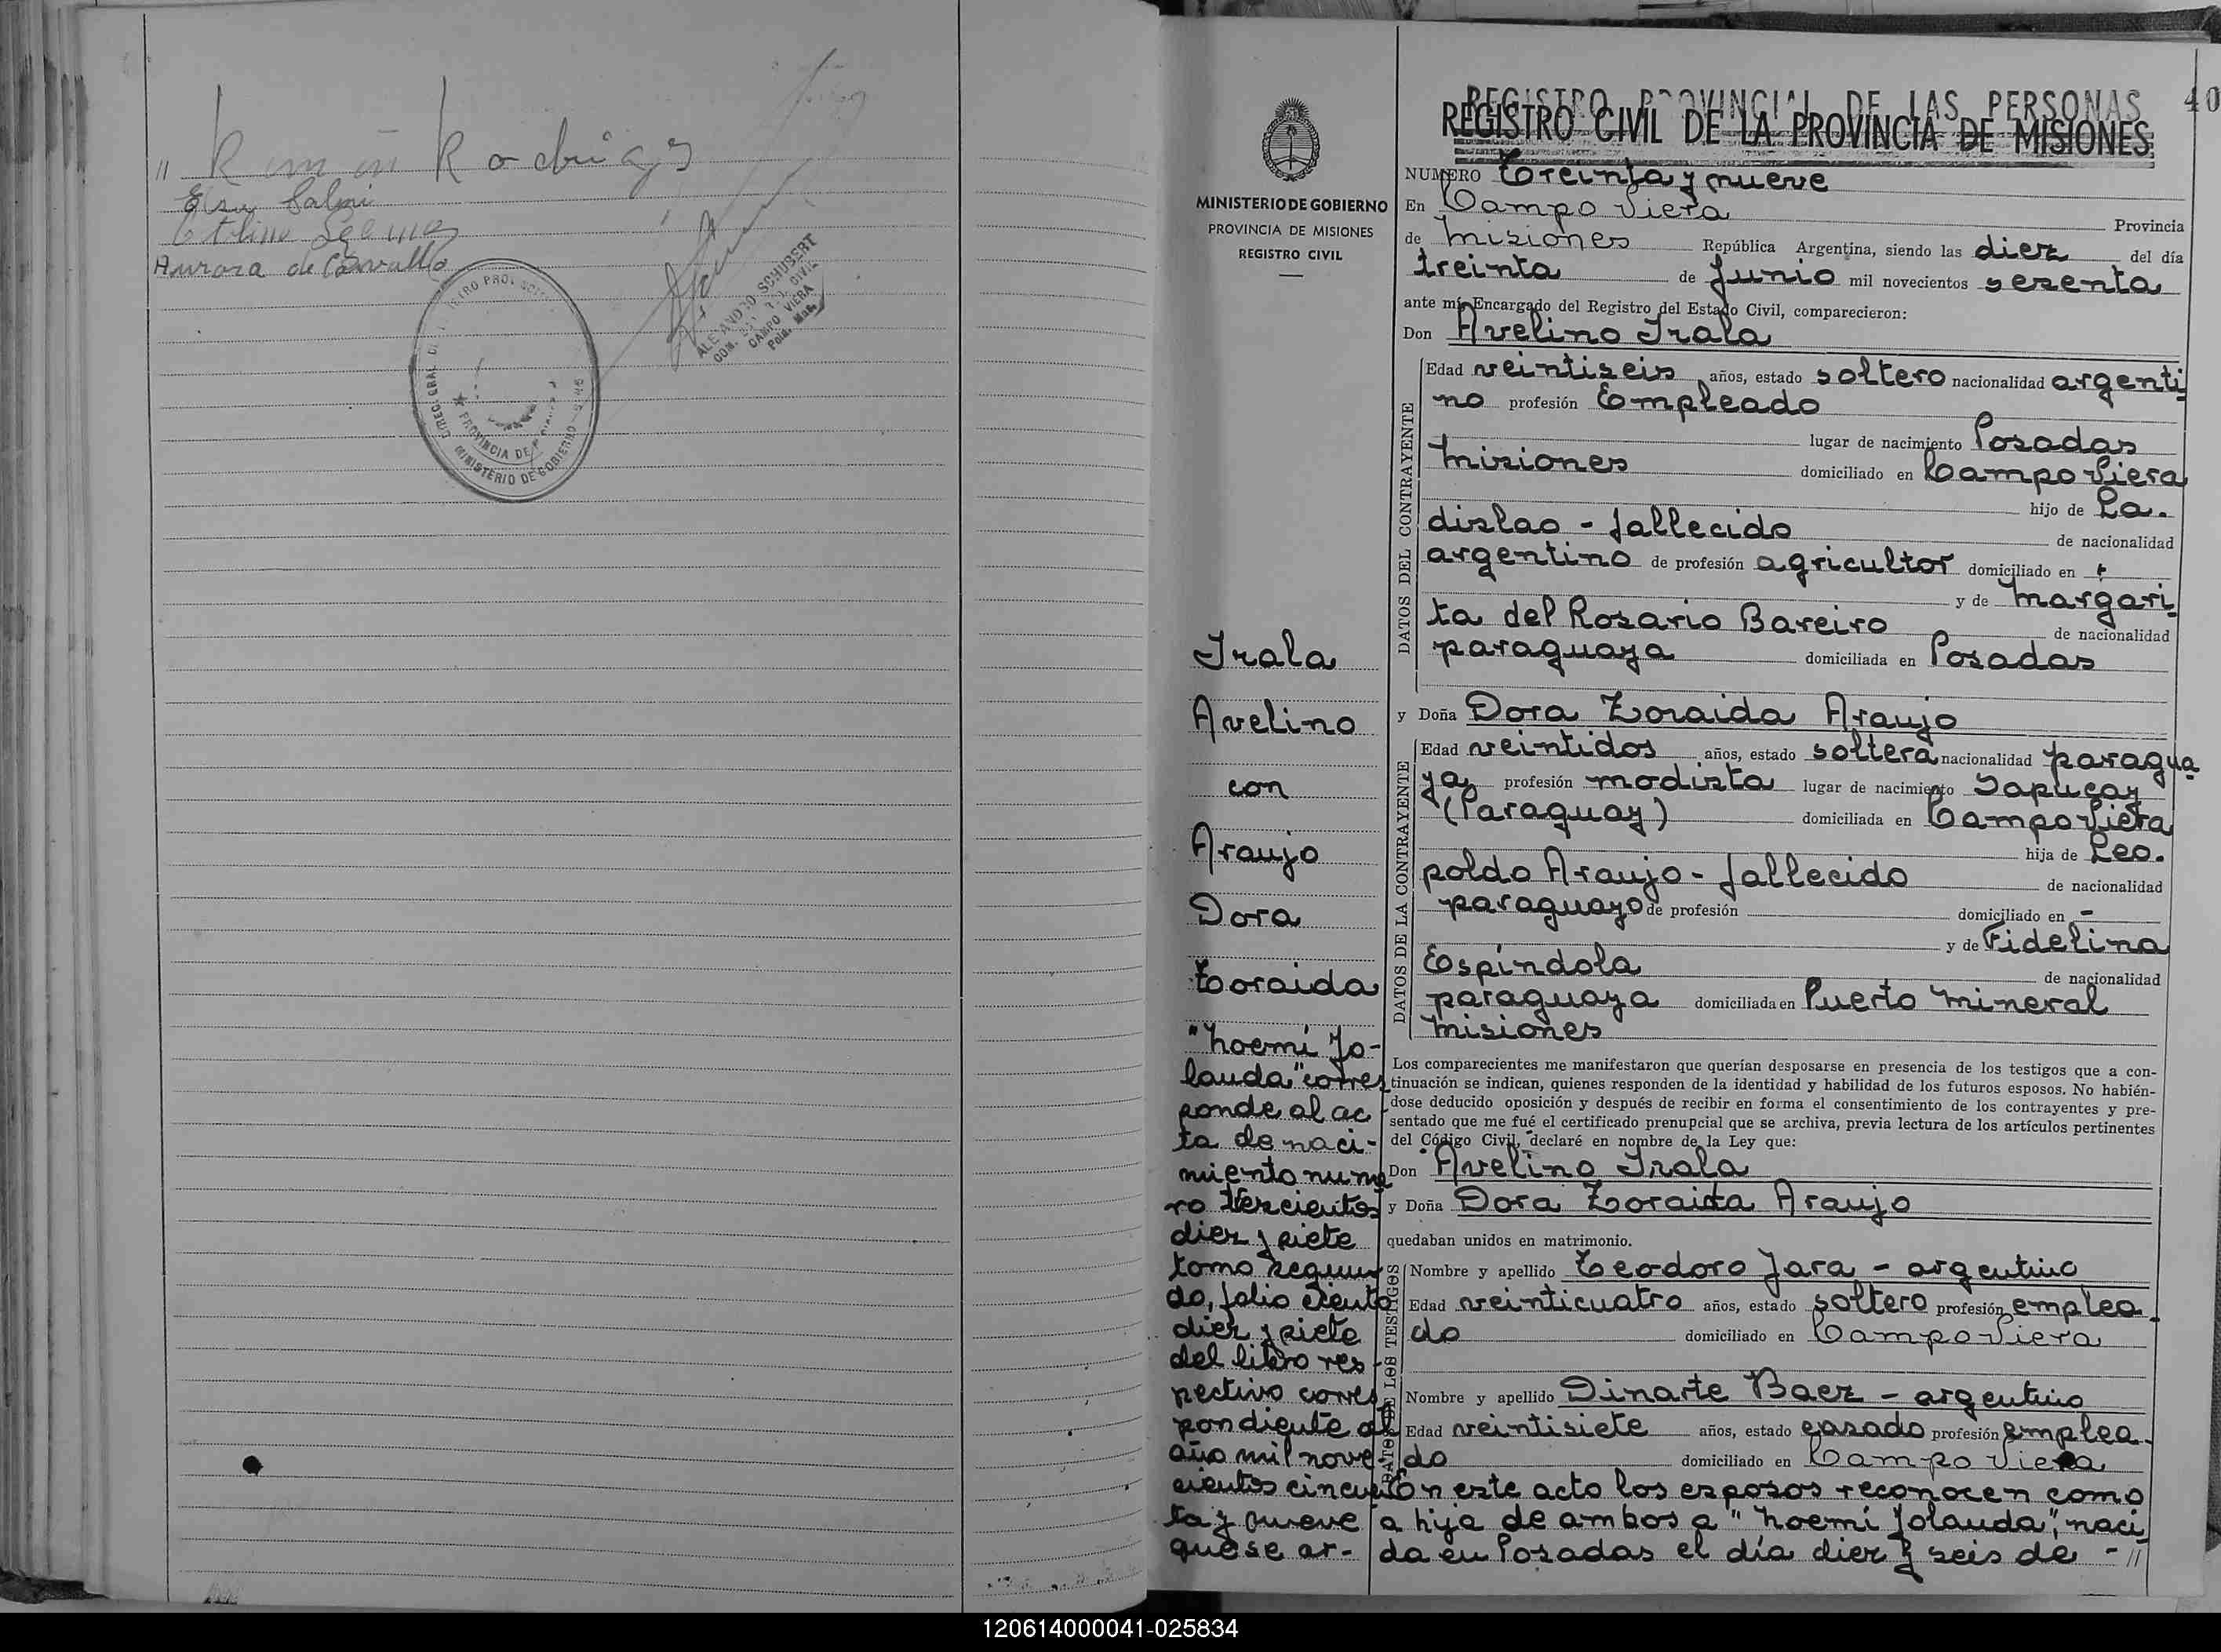 Aurora de Carvallo
ALEJANDRO SCHUBERT
CAMPO VIERA
MINISTERIO DE GOBIERNO
PROVINCIA DE
40
REGISTRO PROVINCIAL DE LAS PERSONAS
REGISTRO CIVIL DE LA PROVINCIA DE MISIONES
MINISTERIO DE GOBIERNO
PROVINCIA DE MISIONES
REGISTRO CIVIL
NUMERO Treinta y nueve
En Campo Viera
Provincia
de Misiones República Argentina, siendo las diez del día
treinta de Junio mil novecientos sesenta
ante mí, Encargado del Registro del Estado Civil, comparecieron:
Don Avelino Irala
DATOS DEL CONTRAYENTE
Edad veintiseis años, estado soltero nacionalidad argenti
no profesión Empleado
lugar de nacimiento Posadas
Misiones domiciliado en Campo Viera
hijo de La-
dislao - fallecido de nacionalidad
argentino de profesión agricultor domiciliado en
y de Margari
ta del Rosario Bareiro de nacionalidad
paraguaya domiciliada en Posadas
y Doña Dora Zoraida Araujo
DATOS DE LA CONTRAYENTE
Edad veintidos años, estado soltera nacionalidad paragua
ya profesión modista lugar de nacimiento Sapucay
(Paraguay) domiciliada en Campo Viera
hija de Leo-
poldo Araujo - fallecido de nacionalidad
paraguayo de profesión domiciliado en -
y de Fidelina
Espíndola de nacionalidad
paraguaya domiciliada en Puerto Mineral
Misiones
Los comparecientes me manifestaron que querían desposarse en presencia de los testigos que a con-
tinuación se indican, quienes responden de la identidad y habilidad de los futuros esposos. No habién-
dose deducido oposición y después de recibir en forma el consentimiento de los contrayentes y pre-
sentado que me fué el certificado prenupcial que se archiva, previa lectura de los artículos pertinentes
del Código Civil, declaré en nombre de la Ley que:
Don Avelino Irala
y Doña Dora Zoraida Araujo
quedaban unidos en matrimonio.
DATOS DE LOS TESTIGOS
Nombre y apellido Teodoro Jara - argentino
Edad veinticuatro años, estado soltero profesión emplea-
do domiciliado en Campo Viera
Nombre y apellido Dinarte Baez - argentino
Edad veintisiete años, estado casado profesión emplea-
do domiciliado en Campo Viera
En este acto los esposos reconocen como
a hija de ambos a "Noemí Jolanda", naci
da en Posadas el día diez y seis de - //
Irala
Avelino
con
Araujo
Dora
Zoraida
"Noemi Jo-
landa" corres
ponde al ac
ta de naci-
miento nume
ro trescientos
diez y siete
tomo segun
do, folio ciento
diez y siete
del libro res-
pectivo corres
pondiente al
año mil nove
cientos cincuen
ta y nueve
que se ar-
120614000041-025834